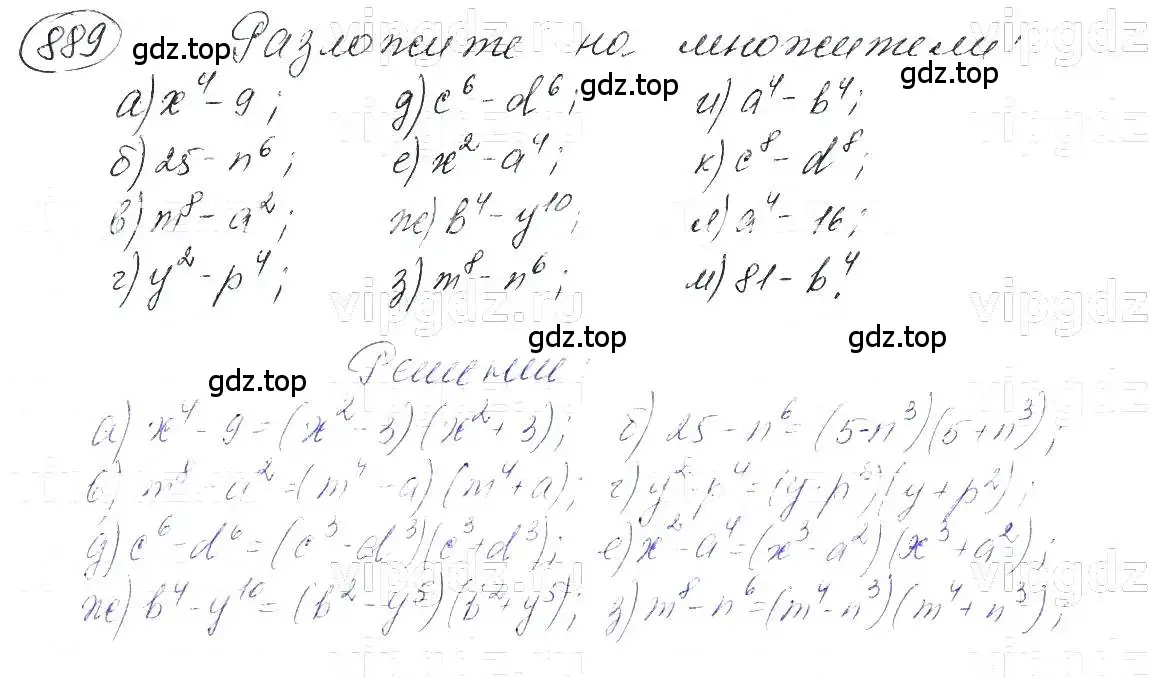 889 Разложите на множители:
а) x⁴ - 9; д) c⁶ - d⁶; и) a⁴ - b⁴;
б) 25 - n⁶; е) x² - a⁴; к) c⁸ - d⁸;
в) m⁸ - a²; ж) b⁴ - y¹⁰; л) a⁴ - 16;
г) y² - p⁴; з) m⁸ - n⁶; м) 81 - b⁴.
Решение:
а) x⁴ - 9 = (x² - 3)(x² + 3); б) 25 - n⁶ = (5 - n³)(5 + n³);
в) m⁸ - a² = (m⁴ - a)(m⁴ + a); г) y² - p⁴ = (y - p²)(y + p²);
д) c⁶ - d⁶ = (c³ - d³)(c³ + d³); е) x² - a⁴ = (x³ - a²)(x³ + a²);
ж) b⁴ - y¹⁰ = (b² - y⁵)(b² + y⁵); з) m⁸ - n⁶ = (m⁴ - n³)(m⁴ + n³);
gdz.top
gdz.top
gdz.top
gdz.top
gdz.top
gdz.top
vipgdz.ru
vipgdz